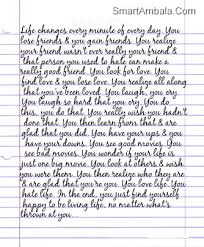 SmartAmbala.Com
Life changes every minute of every day. You
lose friends & you gain friends. You realize
your friend wasn't ever really your friend &
that person you used to hate can make a
really good friend. You look for love. You
find love & you lose love. You realize all along
that you've been loved. You laugh, you cry.
You laugh so hard that you cry. You do
this, you do that. You really wish you hadn't
done that. You then learn from that & are
glad that you did. You have your ups & you
have your downs. You see good movies. You
see bad movies. You wonder if your life is
just one big movie. You look at others & wish
you were them. You then realize who they are
& are glad that you're you. You love life. You
hate life. In the end, you just find yourself
happy to be living life, no matter what's
thrown at you...